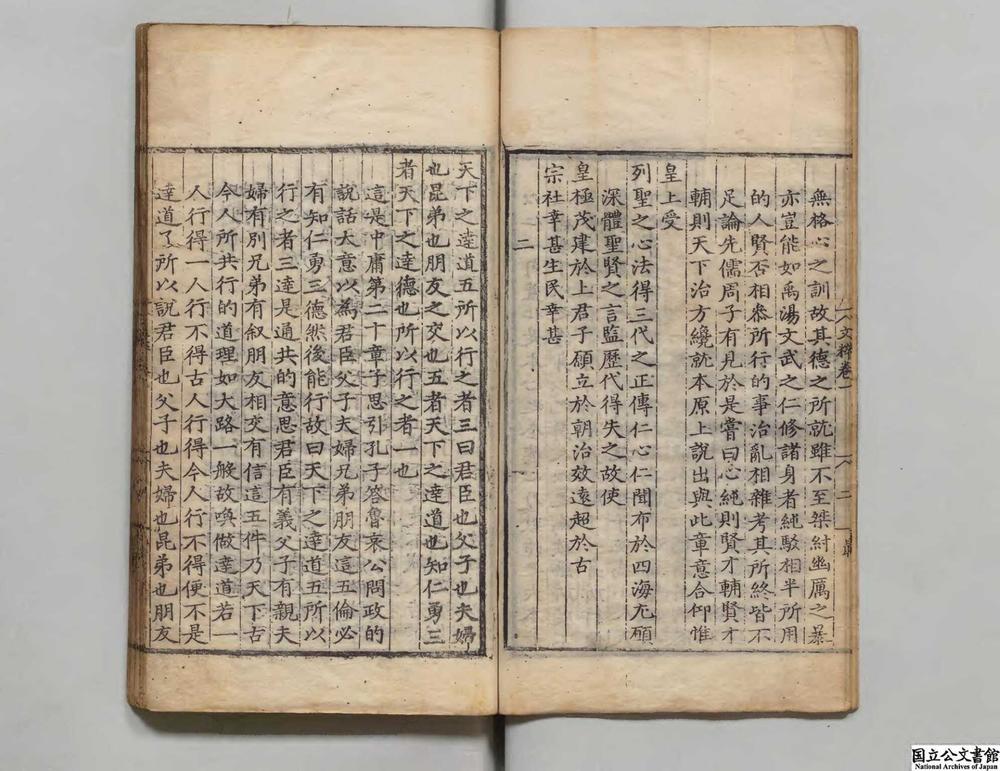 無格心之訓故其德之所就雖不至桀紂幽厲之暴
亦豈能如禹湯文武之仁修諸身者純駁相半所用
的人賢否相叅所行的事治亂相雜考其所終皆不
足論先儒周子有見於是嘗曰心純則賢才輔賢才
輔則天下治方纔就本原上說出與此章意合仰惟
皇上受
列聖之心法得三代之正傳仁心仁聞布於四海尢願
深體聖賢之言監歷代得失之故使
皇極茂建於上君子願立於朝治效遠超於古
宗社幸甚生民幸甚
二
天下之達道五所以行之者三曰君臣也父子也夫婦
也昆弟也朋友之交也五者天下之達道也知仁勇三
者天下之達德也所以行之者一也
這是中庸第二十章子思引孔子答魯哀公問政的
說話大意以為君臣父子夫婦兄弟朋友這五倫必
有知仁勇三德然後能行故曰天下之達道五所以
行之者三達是通共的意思君臣有義父子有親夫
婦有別兄弟有叙朋友相交有信這五件乃天下古
今人所共行的道理如大路一般故喚做達道若一
人行得一人行不得古人行得今人行不得便不是
達道了所以說君臣也父子也夫婦也昆弟也朋友
国立公文書館
National Archives of Japan